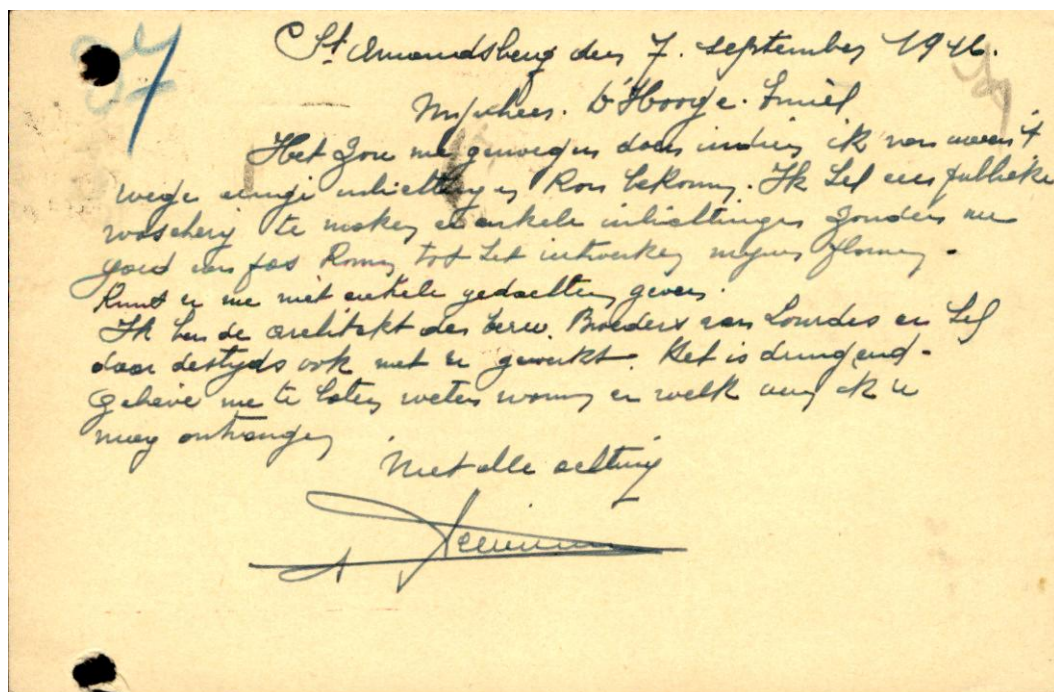 St Amandsberg den 7. september 1946.
Mijnheer. D'Hooge. Emiel
Het zou me genoegen doen indien ik van uwent
wege eenige inlichtingen kon bekomen. Ik heb een publieke
wascherij te maken en enkele inlichtingen zouden me
goed van pas komen tot het uitwerken mijner plannen.
Kunt u me niet enkele gedachten geven.
Ik ben de architekt der eerw. Broeders van Lourdes en heb
daar destijds ook met u gewerkt. Het is dringend.
Gelieve me te laten weten wanneer en welk uur ik u
mag ontvangen
Met alle achting